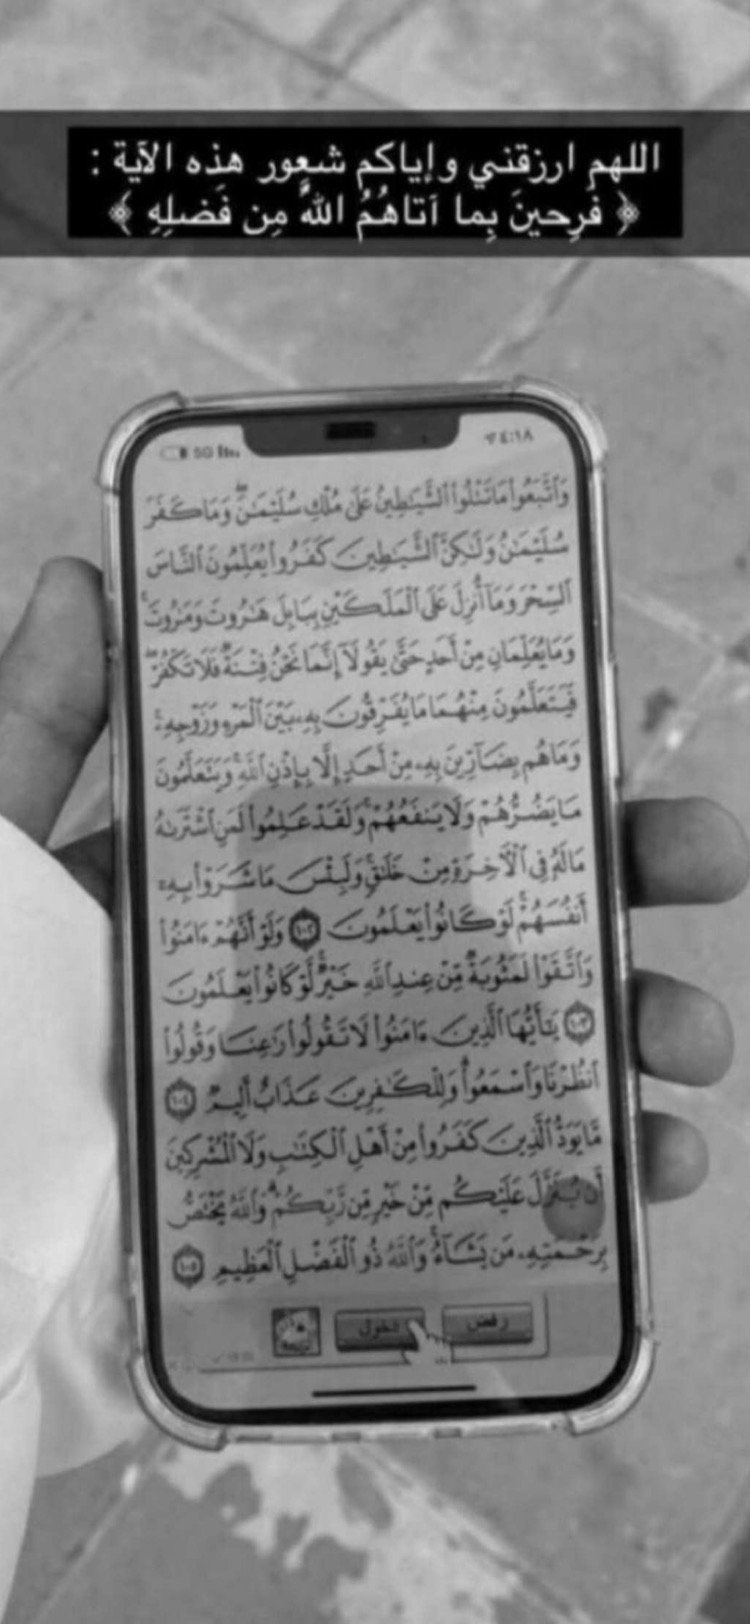 اللهم ارزقني وإياكم شعور هذه الآية :
﴿ فَرِحينَ بِما آتاهُمُ اللَّهُ مِن فَضلِهِ ﴾
5G
٤:١٨
وَٱتَّبَعُوا۟ مَا تَتْلُوا۟ ٱلشَّيَـٰطِينُ عَلَىٰ مُلْكِ سُلَيْمَـٰنَ ۖ وَمَا كَفَرَ
سُلَيْمَـٰنُ وَلَـٰكِنَّ ٱلشَّيَـٰطِينَ كَفَرُوا۟ يُعَلِّمُونَ ٱلنَّاسَ
ٱلسِّحْرَ وَمَآ أُنزِلَ عَلَى ٱلْمَلَكَيْنِ بِبَابِلَ هَـٰرُوتَ وَمَـٰرُوتَ ۚ
وَمَا يُعَلِّمَانِ مِنْ أَحَدٍ حَتَّىٰ يَقُولَآ إِنَّمَا نَحْنُ فِتْنَةٌ فَلَا تَكْفُرْ ۖ
فَيَتَعَلَّمُونَ مِنْهُمَا مَا يُفَرِّقُونَ بِهِۦ بَيْنَ ٱلْمَرْءِ وَزَوْجِهِۦ ۚ
وَمَا هُم بِضَآرِّينَ بِهِۦ مِنْ أَحَدٍ إِلَّا بِإِذْنِ ٱللَّهِ ۚ وَيَتَعَلَّمُونَ
مَا يَضُرُّهُمْ وَلَا يَنفَعُهُمْ ۚ وَلَقَدْ عَلِمُوا۟ لَمَنِ ٱشْتَرَىٰهُ
مَا لَهُۥ فِى ٱلْـَٔاخِرَةِ مِنْ خَلَـٰقٍ ۚ وَلَبِئْسَ مَا شَرَوْا۟ بِهِۦٓ
أَنفُسَهُمْ ۚ لَوْ كَانُوا۟ يَعْلَمُونَ ١٠٢ وَلَوْ أَنَّهُمْ ءَامَنُوا۟
وَٱتَّقَوْا۟ لَمَثُوبَةٌ مِّنْ عِندِ ٱللَّهِ خَيْرٌ ۖ لَّوْ كَانُوا۟ يَعْلَمُونَ
١٠٣ يَـٰٓأَيُّهَا ٱلَّذِينَ ءَامَنُوا۟ لَا تَقُولُوا۟ رَٰعِنَا وَقُولُوا۟
ٱنظُرْنَا وَٱسْمَعُوا۟ ۗ وَلِلْكَـٰفِرِينَ عَذَابٌ أَلِيمٌ ١٠٤
مَّا يَوَدُّ ٱلَّذِينَ كَفَرُوا۟ مِنْ أَهْلِ ٱلْكِتَـٰبِ وَلَا ٱلْمُشْرِكِينَ
أَن يُنَزَّلَ عَلَيْكُم مِّنْ خَيْرٍ مِّن رَّبِّكُمْ ۗ وَٱللَّهُ يَخْتَصُّ
بِرَحْمَتِهِۦ مَن يَشَآءُ ۚ وَٱللَّهُ ذُو ٱلْفَضْلِ ٱلْعَظِيمِ ١٠٥
رفض
دخول